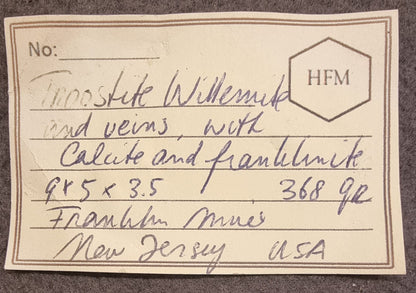 No:
HFM
Troostite Willemite
and veins, with
Calcite and franklinite
9 x 5 x 3.5 368 gr
Franklin Mines
New Jersey USA